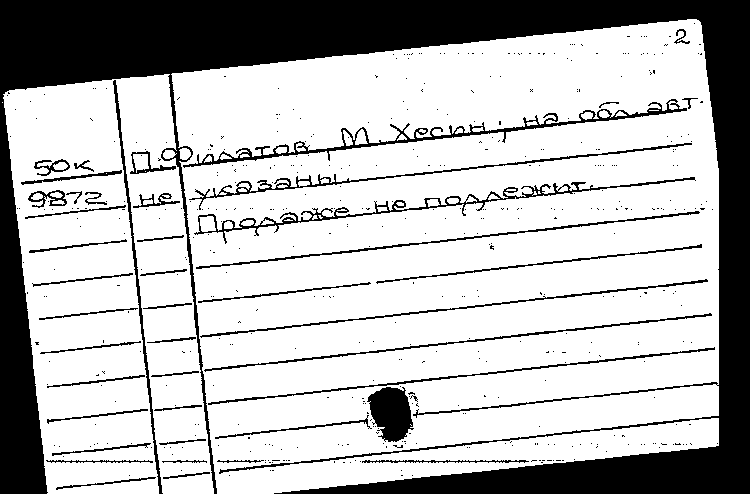 2
50к П.Филатов, М. Хесин; на обл. авт.
9872 не указаны.
Продаже не подлежит.